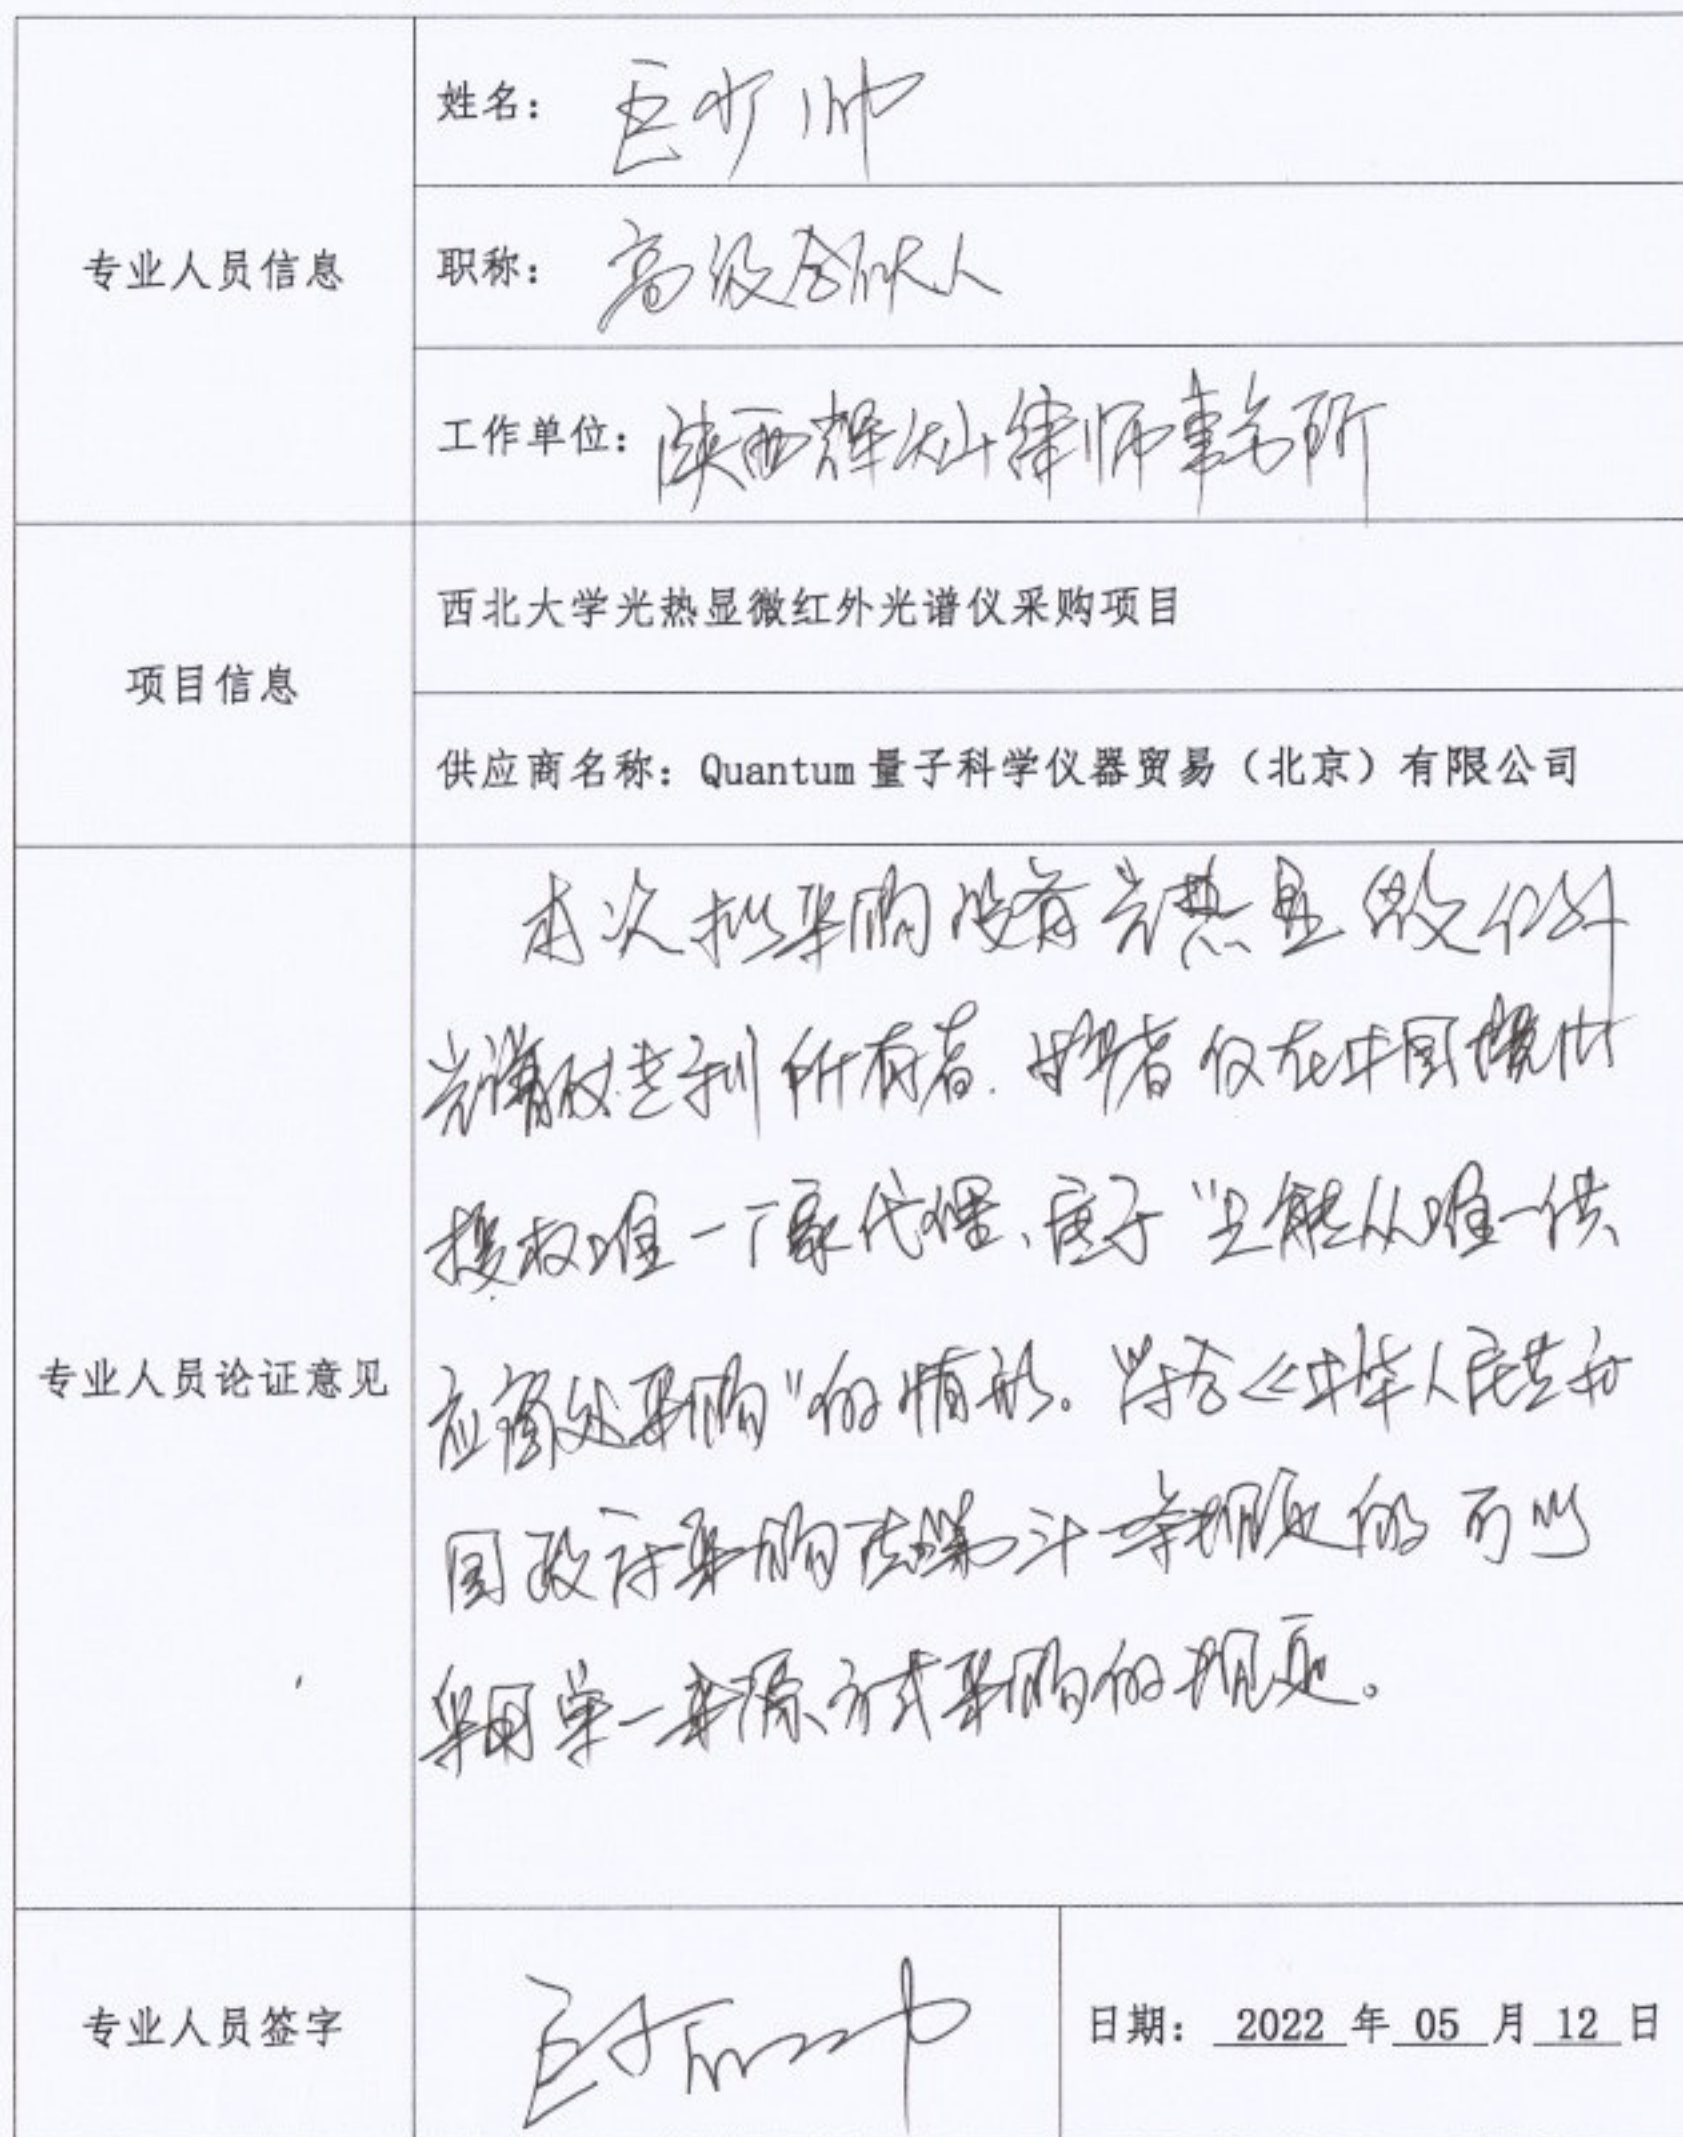 专业人员信息
姓名: 巨少帅
职称: 高级合伙人
工作单位: 陕西辉灿律师事务所
项目信息
西北大学光热显微红外光谱仪采购项目
供应商名称: Quantum量子科学仪器贸易（北京）有限公司
专业人员论证意见
本次拟采购设备光热显微红外
光谱仪专利所有者、持有者仅在中国境内
授权唯一一家代理、属于"只能从唯一供
应商处采购"的情形。符合《中华人民共和
国政府采购法第三十一条规定的可以
采用单一来源方式采购的规定。
专业人员签字
巨少帅
日期: 2022 年 05 月 12 日